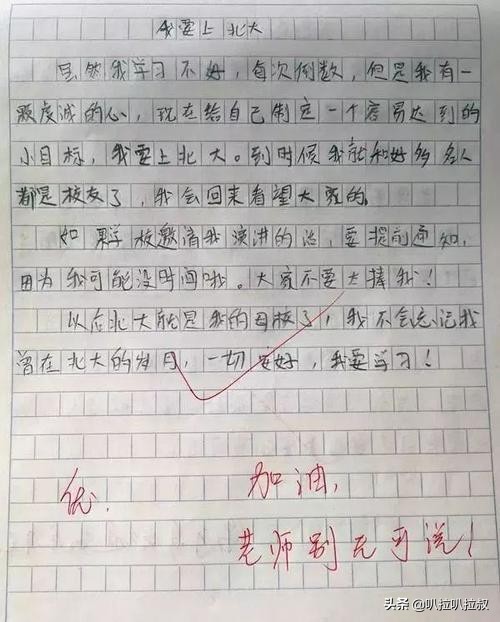 我要上北大
虽然我学习不好，每次倒数，但是我有一
颗虔诚的心，现在给自己制定一个容易达到的
小目标，我要上北大。到时候我就和好多名人
都是校友了，我会回来看望大家的。
如果学校邀请我演讲的话，要提前通知，
因为我可能没时间哦。大家不要太捧我！
以后北大就是我的母校了，我不会忘记我
曾在北大的岁月，一切安好，我要学习！
优.
加油，
老师别无可说！
头条 @叭拉叭拉叔